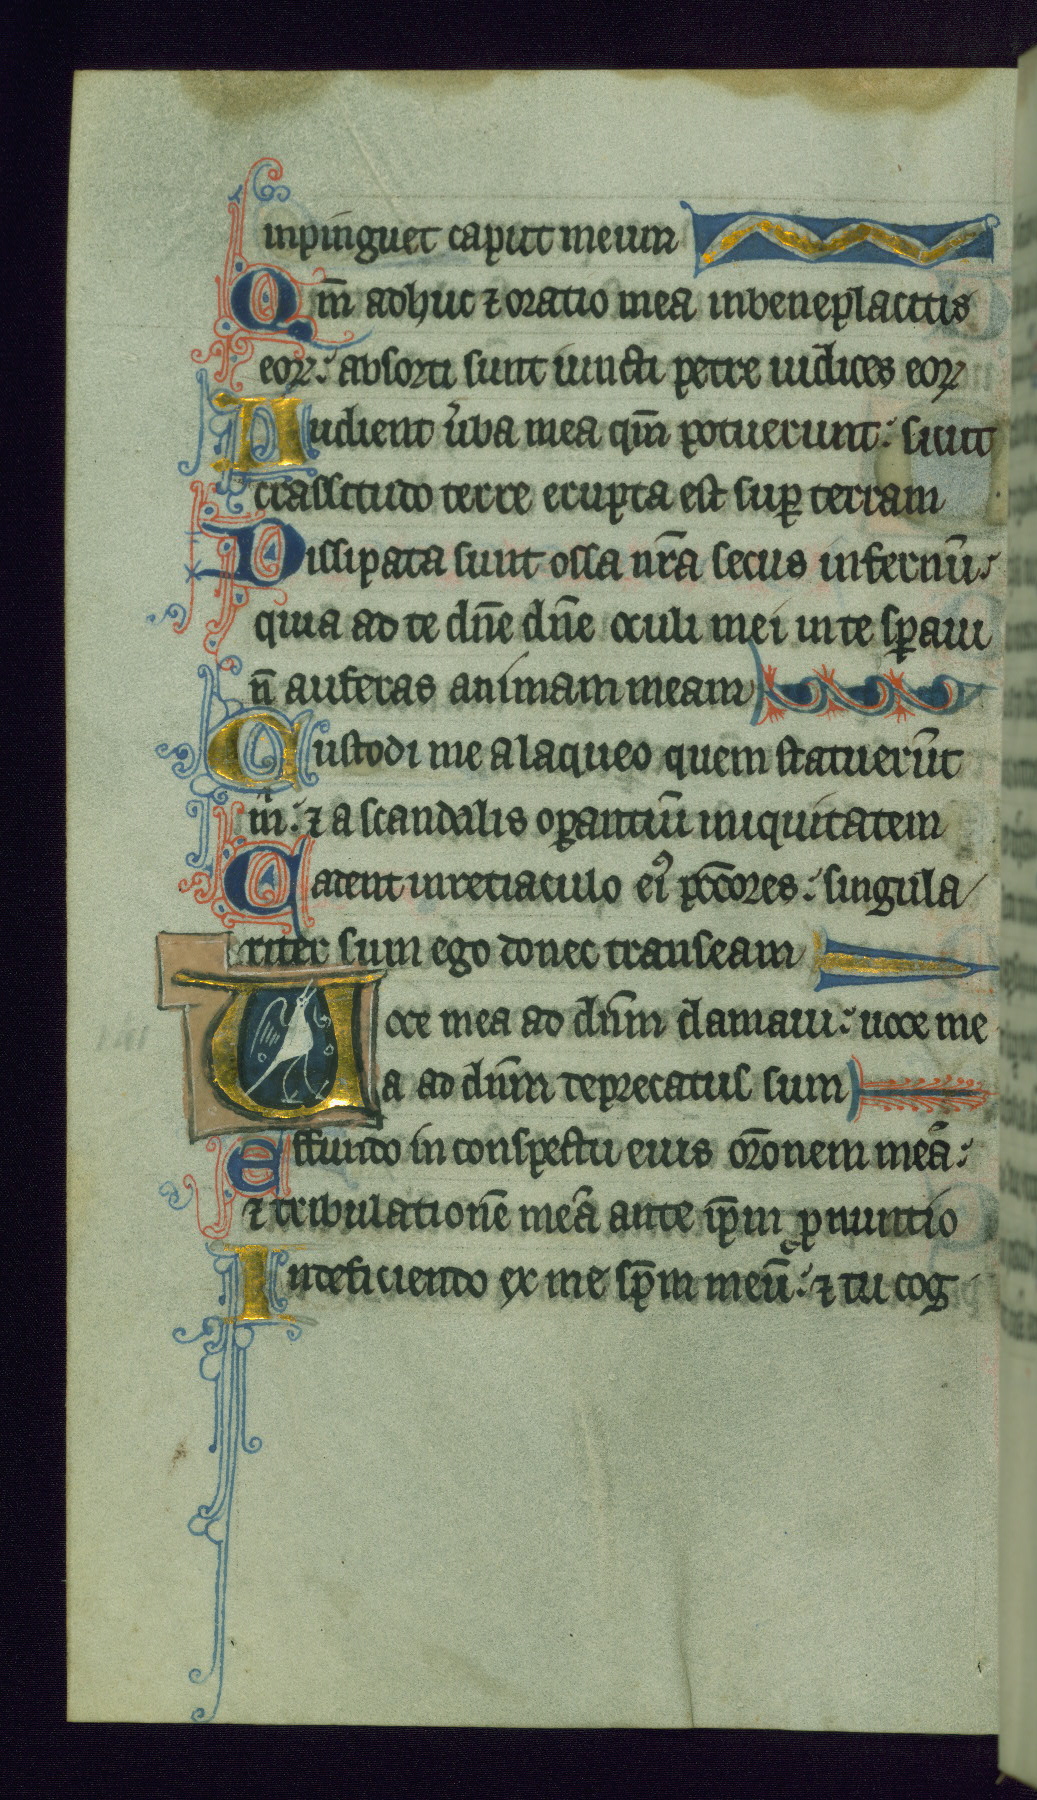 inpinguet caput meum
Qm̄ adhuc ⁊ oratio mea inbeneplacitis
eoꝝ: absorti sunt iuncti petre iudices eoꝝ
Audient ũba mea qm̄ potuerunt: sicut
crassitudo terre erupta est suꝑ terram
Dissipata sunt ossa nr̄a secus infernū:
quia ad te dn̄e dn̄e oculi mei in te sꝑaui
n̄ auferas animam meam
Custodi me a laqueo quem statuerūt
m̄: ⁊ a scandalis oꝑantiū iniquitatem
Cadent inretiaculo ei᾽ pc̄cores: singula
riter sum ego donec transeam
Uoce mea ad dn̄m clamaui: uoce me
a ad dn̄m deprecatus sum
Effundo in conspectu eius or̄onem meā:
⁊ tribulationē meā ante ip̄m ꝓnuntio
Indeficiendo ex me sp̄m meū: ⁊ tu cog